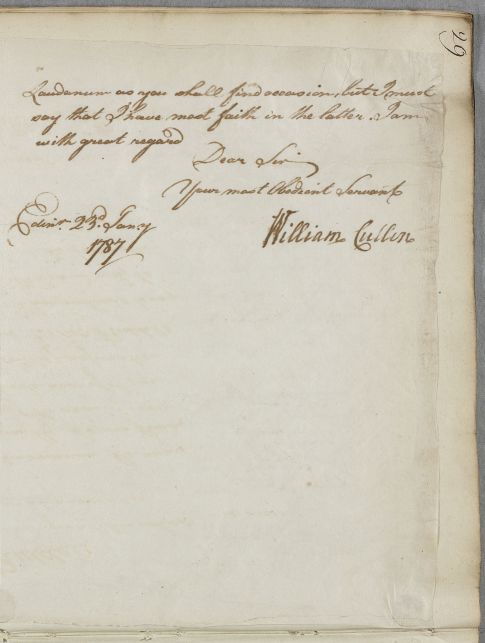 29
Laudanum as you shall find occasion, but I must
say that I have most faith in the latter. I am
with great regard
Dear Sir
Your most Obedient Servant
Edinr. 23d. Jany
1787
William Cullen